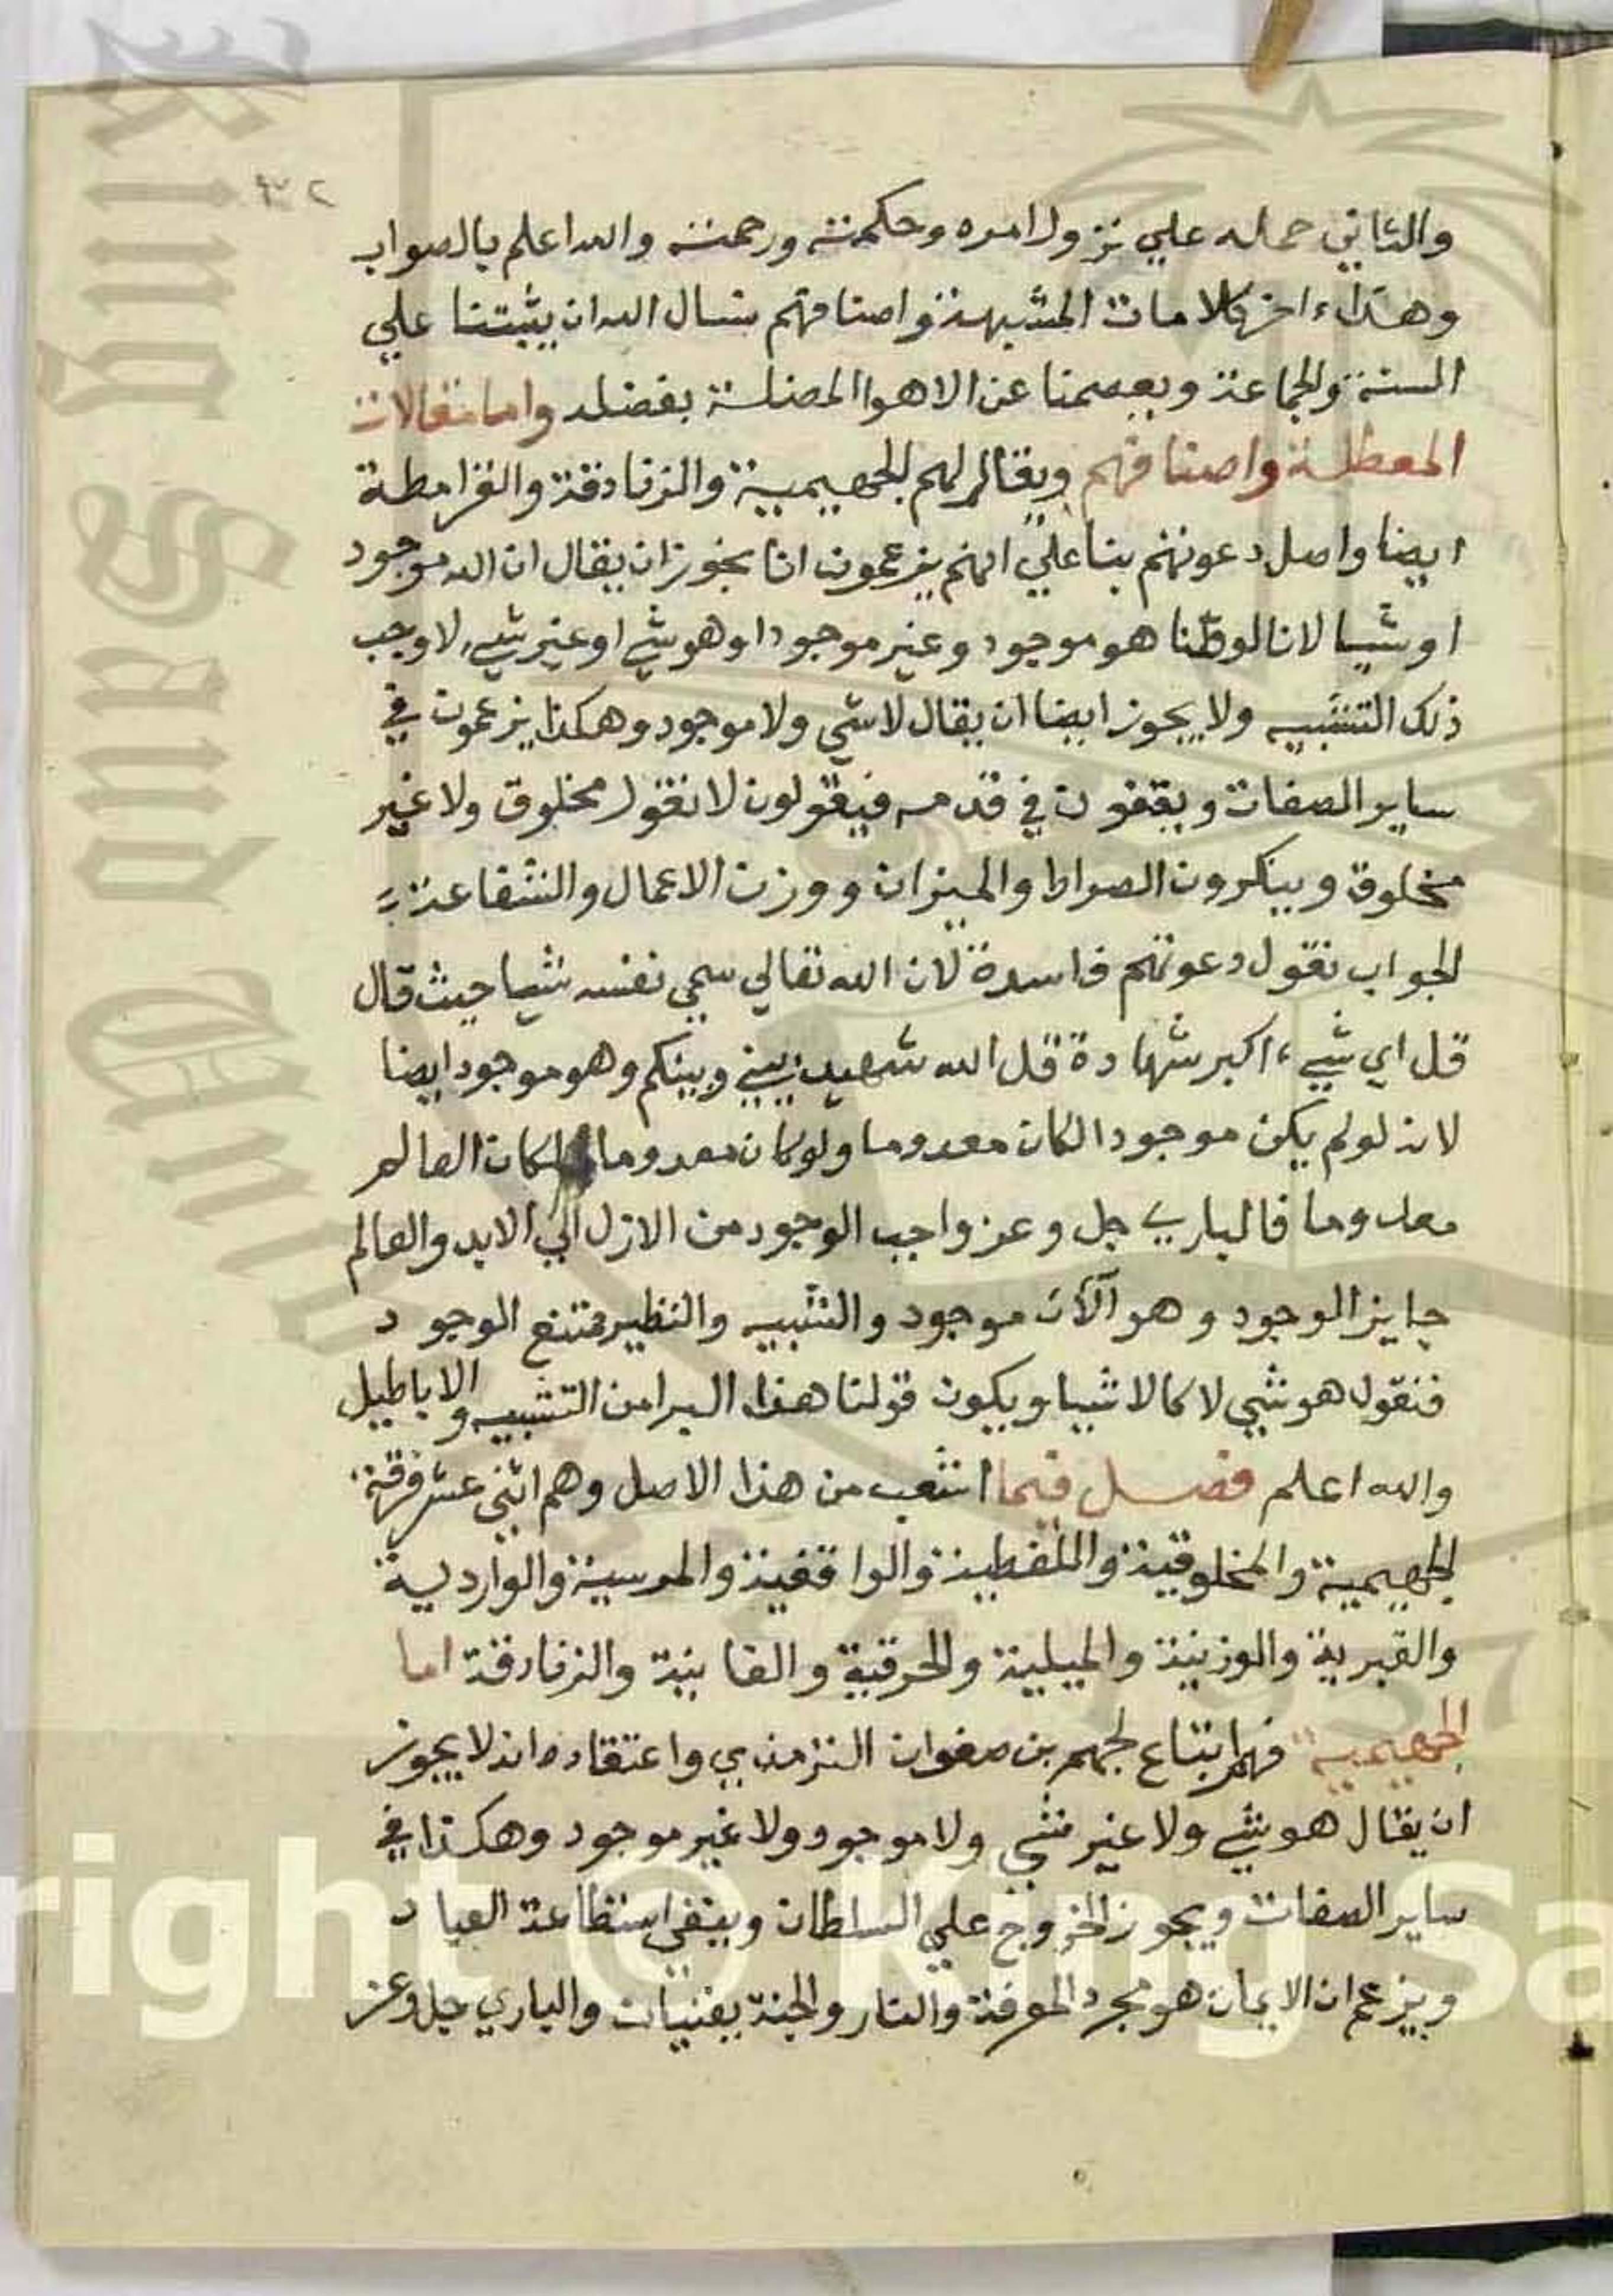 والثاني حمله علي نزول امره وحكمته ورحمته والله اعلم بالصواب
وهذاء اخر كلامات المشبهة واصنافهم نسال الله ان يثبتنا علي
السنة والجماعة ويعصمنا عن الاهوا المضلة بفضله واما مقالات
المعطلة واصنافهم ويقال لهم الجهيمية والزنادقة والقرامطة
ايضا واصل دعوتهم بنا علي انهم يزعمون انا نجوز ان يقال ان الله موجود
او شيا لانا لو ظنا هو موجود وغير موجود او هو شي او غير شي لاوجب
ذلك التشبيه ولا يجوز ايضا ان يقال لا شي ولا موجود وهكذا يزعمون في
ساير الصفات ويقفون في قدمه فيقولون لا نقول مخلوق ولا غير
مخلوق وينكرون الصراط والميزان ووزن الاعمال والشفاعة
الجواب نقول دعوتهم فاسدة لان الله تعالي سمي نفسه شيا حيث قال
قل اي شيء اكبر شهادة قل الله شهيد بيني وبينكم وهو موجود ايضا
لانه لو لم يكن موجودا لكان معدوما ولو كان معدوما لكان العالم
معدوما فالباري جل وعز واجب الوجود من الازل الي الابد والعالم
جايز الوجود وهو آلآن موجود والشبيه والنظير ممتنع الوجود
فنقول هو شي لا كالاشيا ويكون قولنا هذا البرا من التشبيه والاباطيل
والله اعلم فصل فيما انشعب من هذا الاصل وهم اثني عشر فرقة
الجهيمية والمخلوقية واللفظية والواقفية والمرسية والواردية
والقبرية والوزنية والميلية والحرقية والفانية والزنادقة اما
الجهيمية فهم اتباع لجهم بن صفوان الترمذي واعتقاده انه لا يجوز
ان يقال هو شي ولا غير شي ولا موجود ولا غير موجود وهكذا في
ساير الصفات ويجوز الخروج علي السلطان وينفي استطاعة العباد
ويزعم ان الايمان هو مجرد المعرفة والنار والجنة يفنيان والباري جل وعز
King Saud Univ
1957
right © King Sa